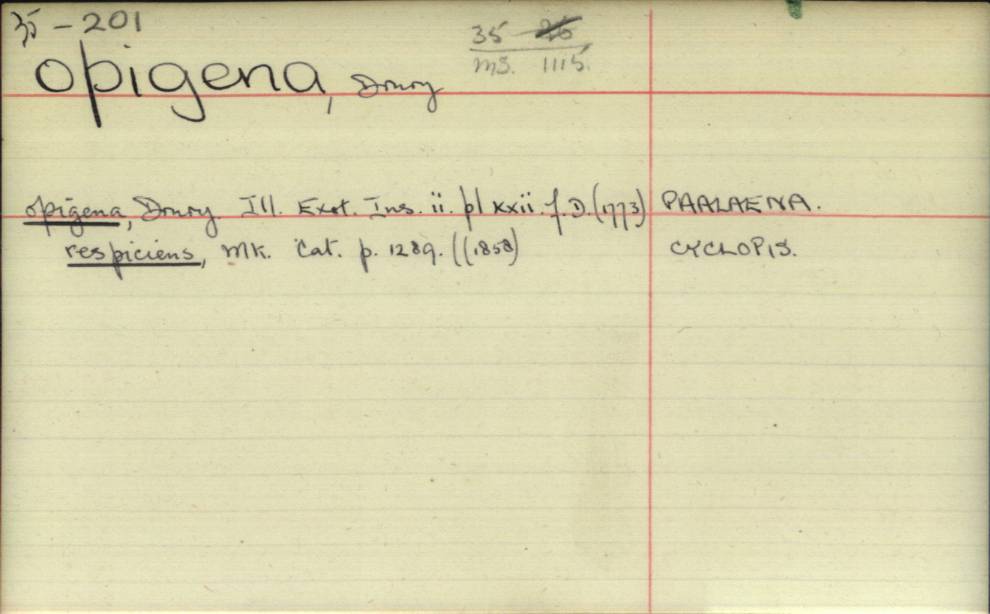 35 - 201
35 26
MS. 1115.
opigena, Drury
opigena, Drury Ill. Exot. Ins. ii. pl xxii. f. D. (1773) PAALAENA.
respiciens, Mk. Cat. p. 1289. ((1858) CYCLOPIS.